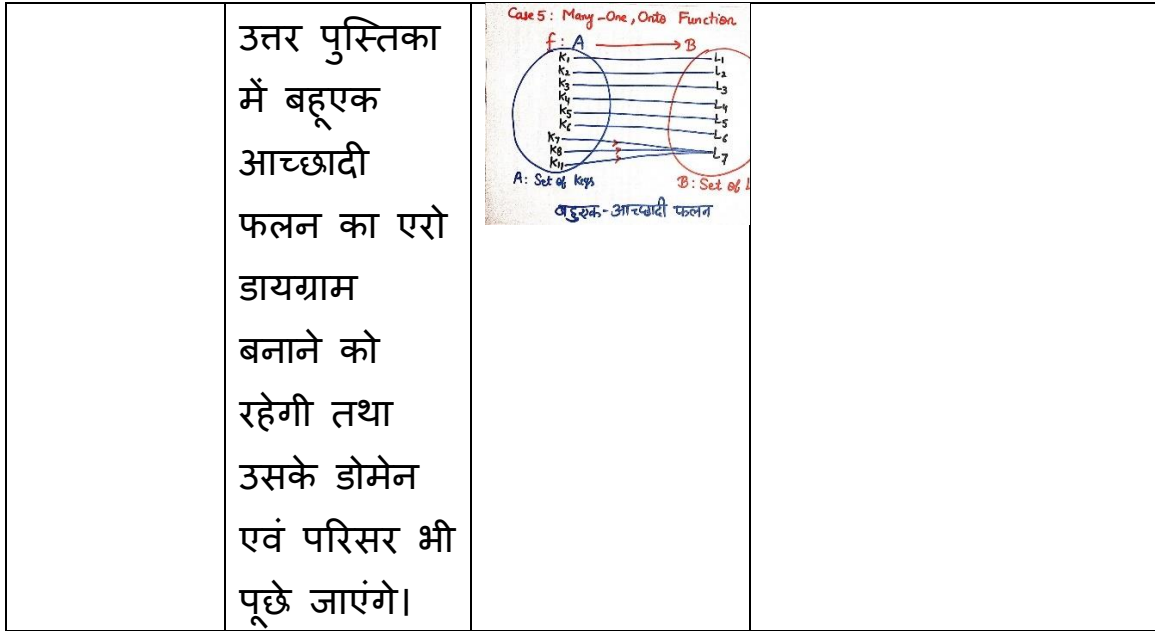 उत्तर पुस्तिका
में बहूएक
आच्छादी
फलन का एरो
डायग्राम
बनाने को
रहेगी तथा
उसके डोमेन
एवं परिसर भी
पूछे जाएंगे।
Case 5: Many-One, Onto Function
f: A → B
K1 L1
K2 L2
K3 L3
K4 L4
K5 L5
K6 L6
K7
K8 L7
K11
A: Set of Keys B: Set of L
बहुएक-आच्छादी फलन